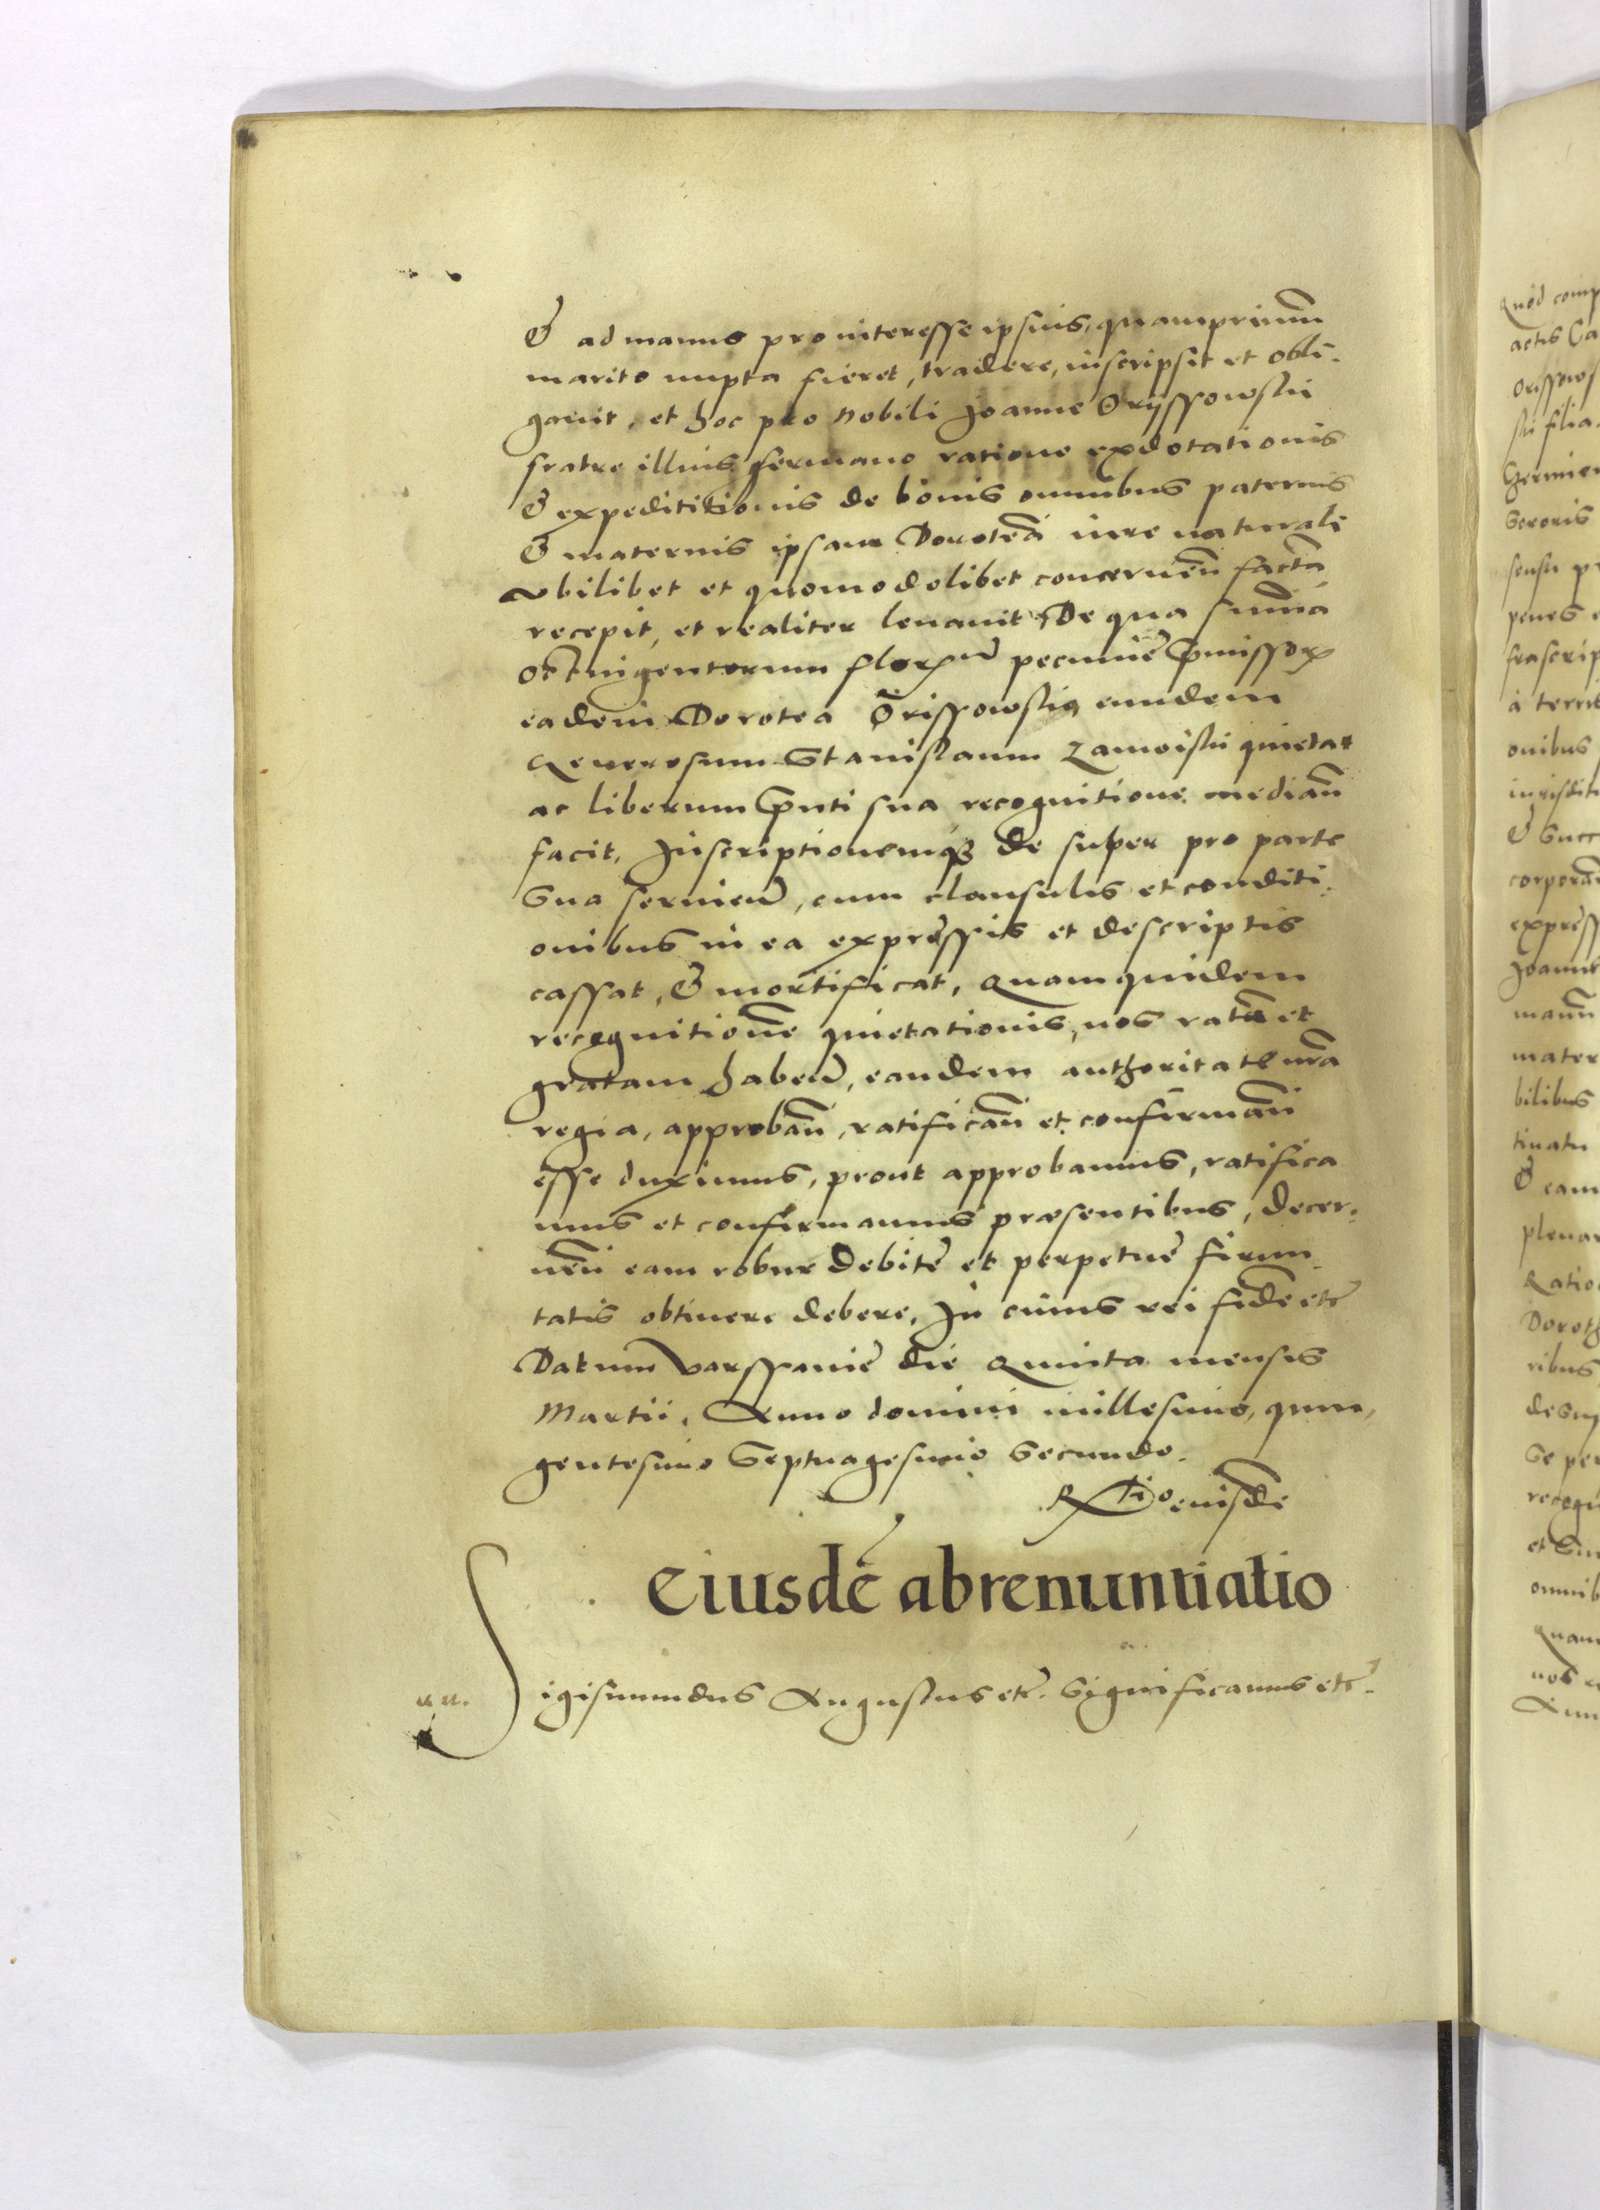 & ad manus pro interesse ipsius, quamprimum
marito nupta fieret, tradere, inscripsit et obli-
gavit, et hoc pro nobili Joanne Oryssowski
fratre illius germano ratione exdotationis
& expedititionis de bonis omnibus paternis
& maternis ipsam Doroteā iure naturali
ubilibet et quomodolibet concernen̄ facta
recepit, et realiter levavit De qua summa
octingentorum florenꝝ pecuniē p̄missorꝝ
eadem Dorotea Orissowska eundem
Generosum Stanislaum Zamoiski quietat
ac liberum p̄nti sua recognitione median̄
facit, Inscriptionemqꝫ de super pro parte
Sua servien̄, cum clausulis et conditi-
onibus in ea expressis et descriptis
cassat, & mortificat, Quam quidem
recognitionē quietationis, nos ratā et
gratam haben̄, eandem authoritate nrā
regia, approban̄, ratifican̄ et confirman̄
esse duximus, prout approbamus, ratifica
mus et confirmamus præsentibus, Decer-
nen̄ eam robur debitē et perpetuē firmi-
tatis obtinere debere, In cuius rei fidē etc̄
Datum Varssaviē die Quinta mensis
Martii, Anno domini millesimo, quin-
gentesimo Septuagesimo Secundo.
Rtio eiusdē
Eiusdē abrenuntiatio
Sigismundus Augustus etc̄. Significamus etc̄.
Quod comp
actis Ca
Orissows
ski filia
Germa
Sororis
sensu p
penes
frascrip
à terri
onibus
iurisditi
& Succ
corporā
express
Joanni
manū
mater
bilibus
& eam
plenar
Ratio
Doroth
ribus
Se per
recogn
omnib
Quam
nos
Ann